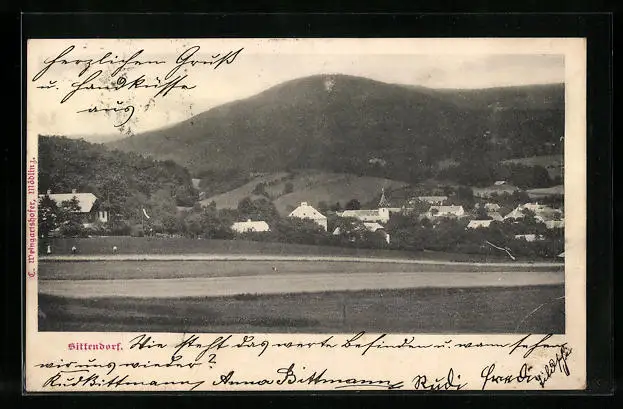 herzlichen Gruß
u. Handküsse
aus
C. Weingartshofer, Mödling.
Sittendorf. Wie steht das werte Befinden u. wann sehen
wir uns wieder?
Rud Bittmann Anna Bittmann Rudi Fredi